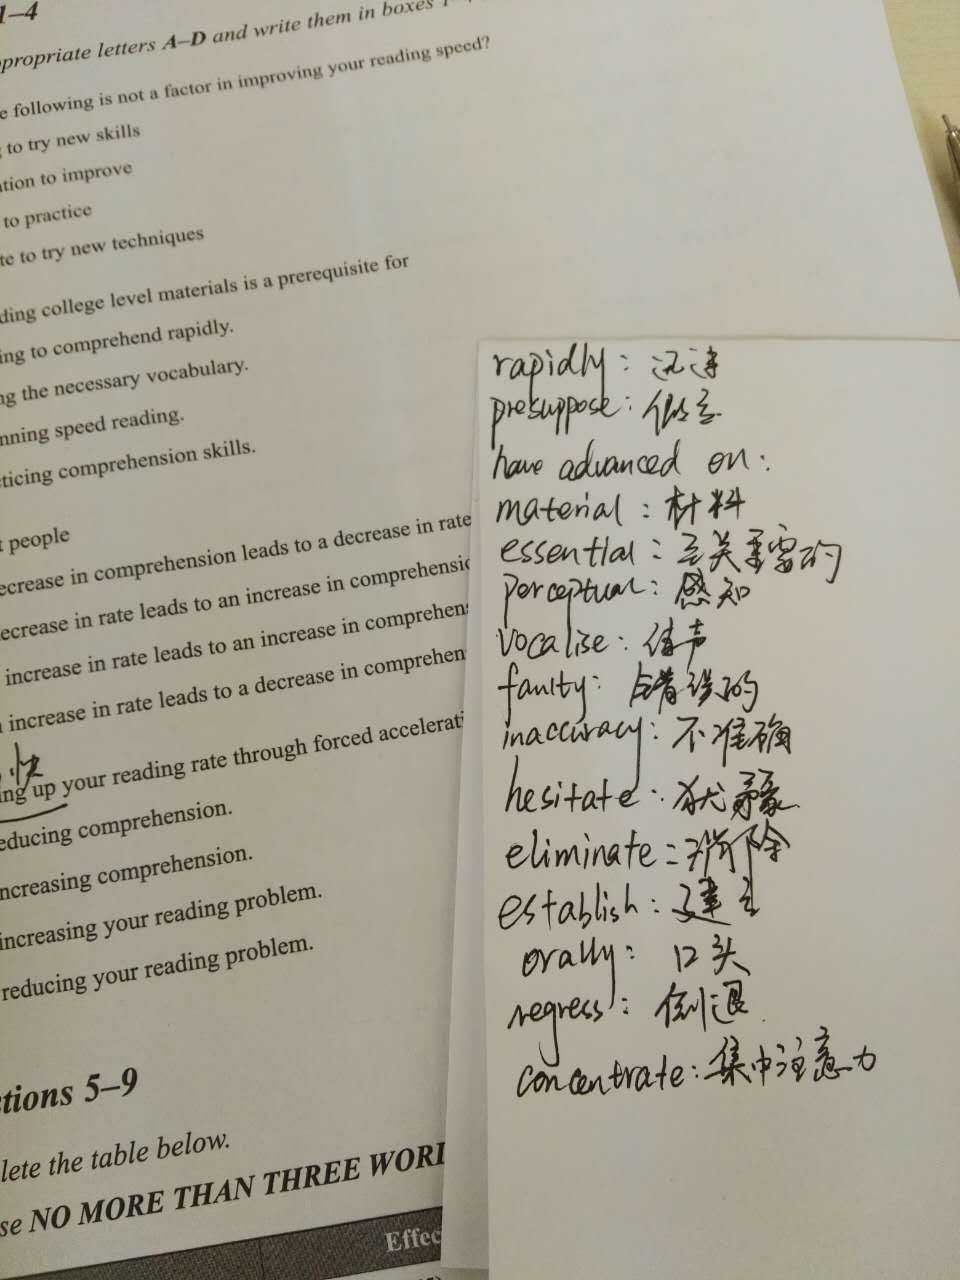 1–4
ppropriate letters A–D and write them in boxes
e following is not a factor in improving your reading speed?
to try new skills
tion to improve
to practice
te to try new techniques
ding college level materials is a prerequisite for
ing to comprehend rapidly.
ng the necessary vocabulary.
nning speed reading.
ticing comprehension skills.
t people
ecrease in comprehension leads to a decrease in rate
ecrease in rate leads to an increase in comprehensio
increase in rate leads to an increase in comprehens
n increase in rate leads to a decrease in comprehen
快
ing up your reading rate through forced accelerati
educing comprehension.
ncreasing comprehension.
increasing your reading problem.
reducing your reading problem.
tions 5–9
lete the table below.
se NO MORE THAN THREE WORD
Effec
rapidly: 迅速
presuppose: 假定
have advanced on:
material: 材料
essential: 至关重要的
perceptual: 感知
vocalise:
faulty: 错误的
inaccuracy: 不准确
hesitate: 犹豫
eliminate: 消除
establish: 建立
orally: 口头
regress: 倒退
concentrate: 集中注意力